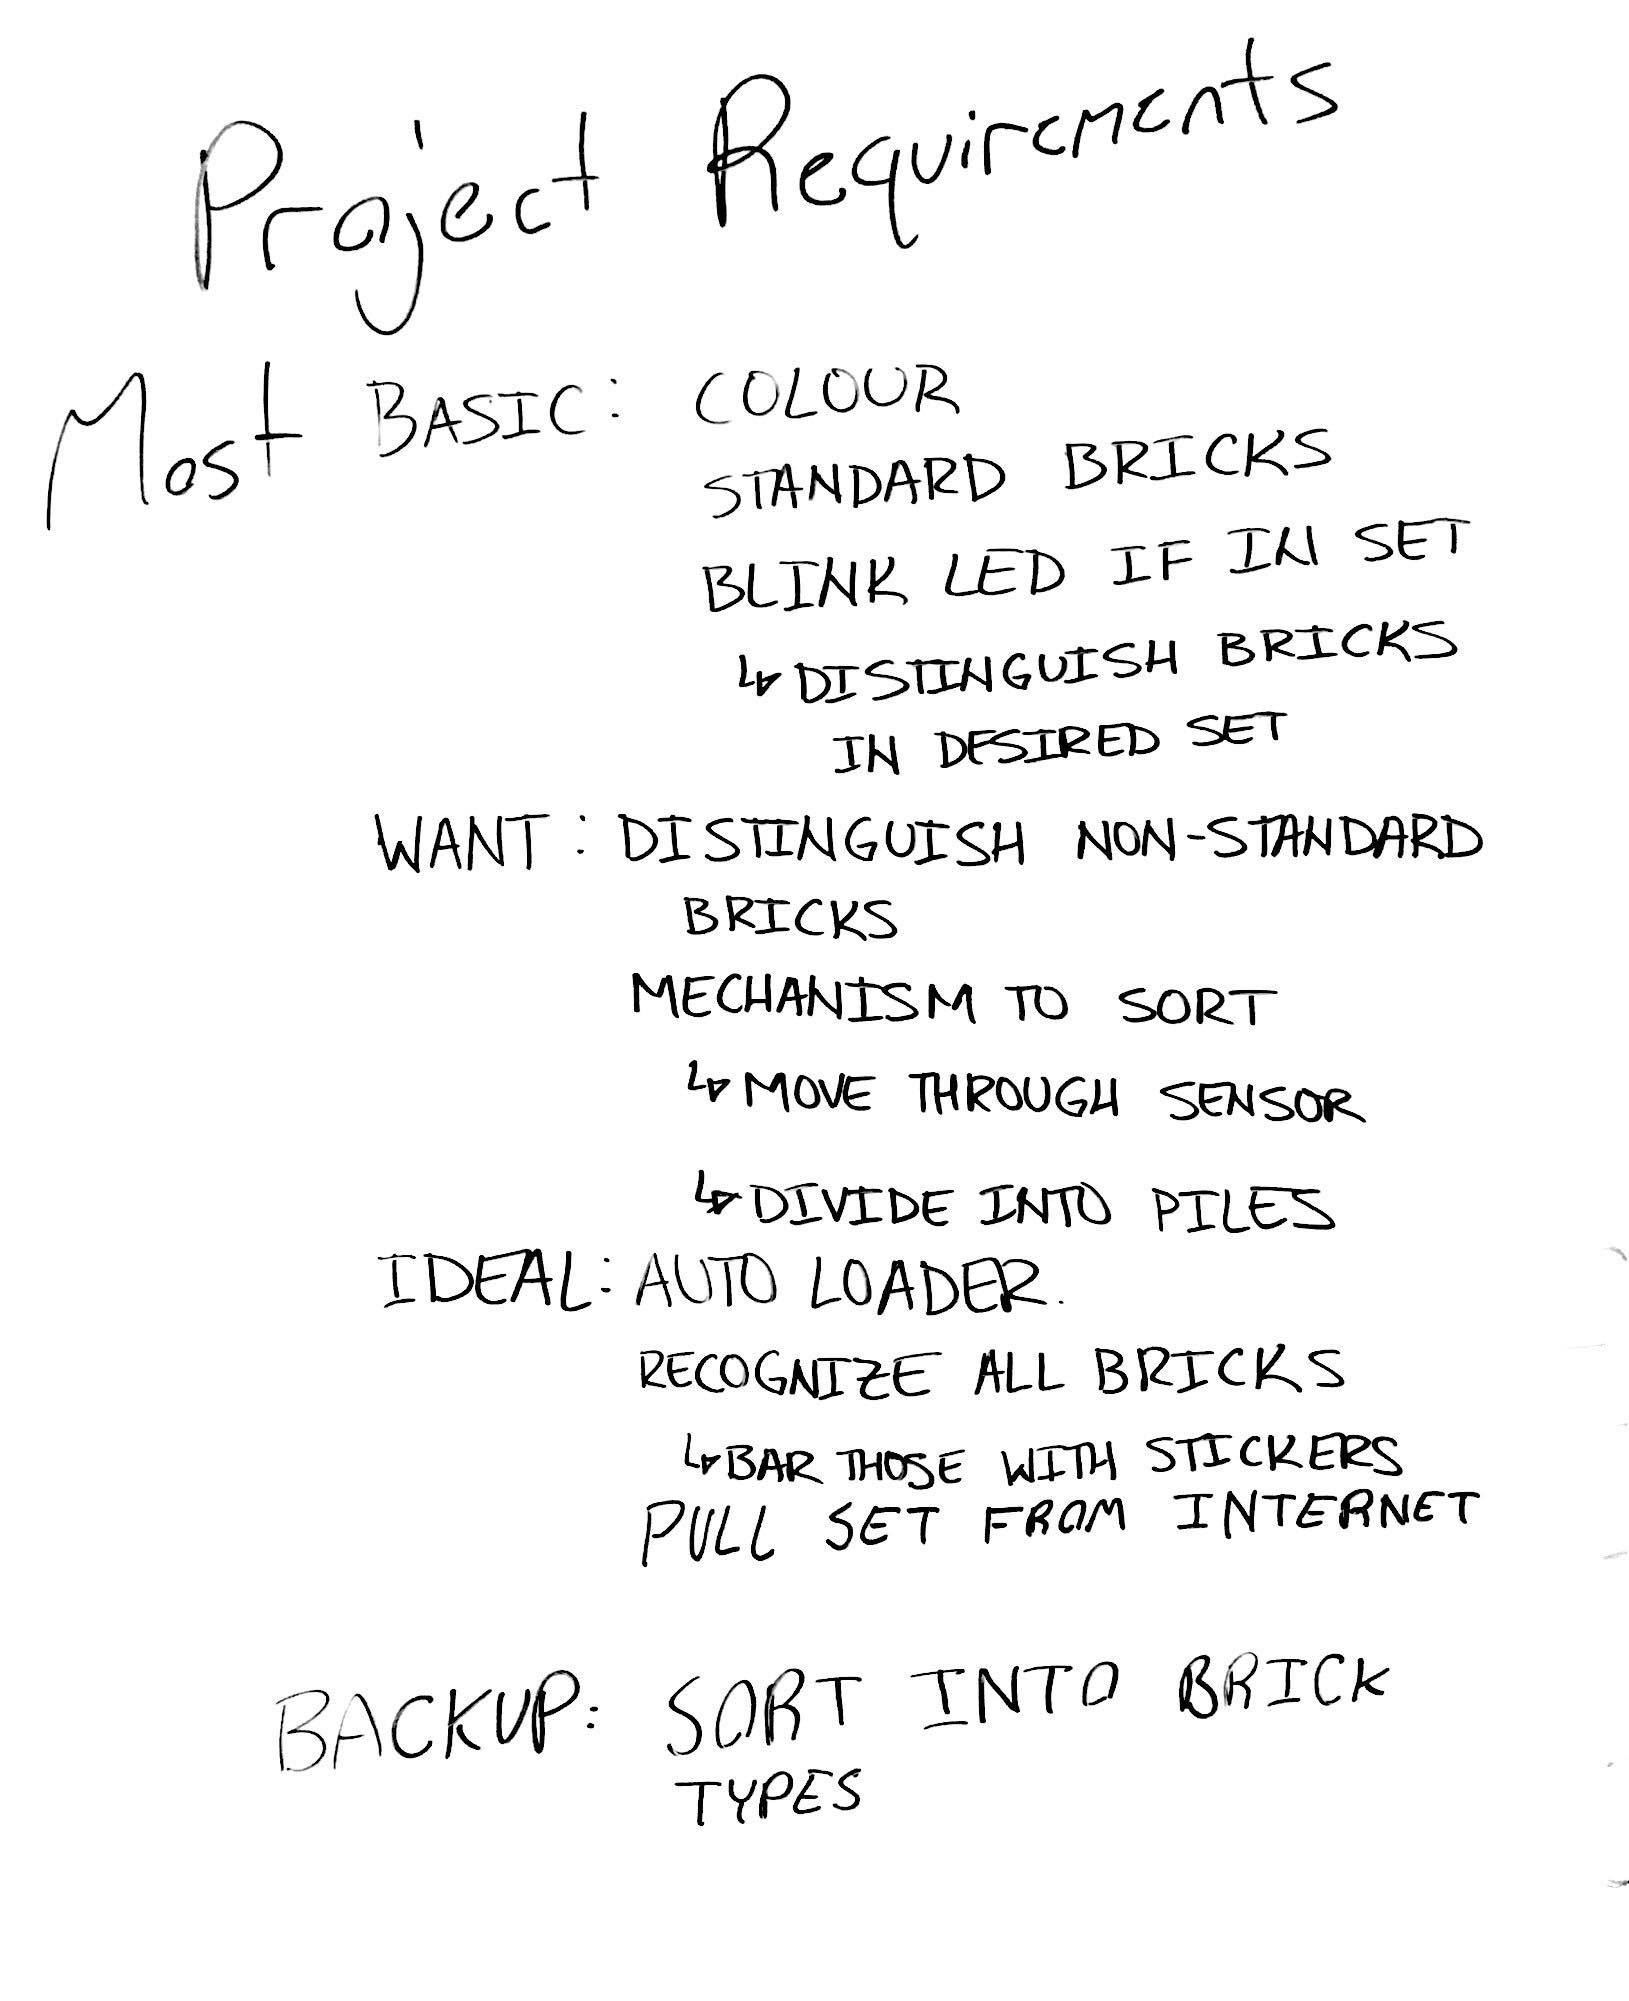 Project Requirements
Most BASIC: COLOUR
STANDARD BRICKS
BLINK LED IF IN SET
↳ DISTINGUISH BRICKS
IN DESIRED SET
WANT: DISTINGUISH NON-STANDARD
BRICKS
MECHANISM TO SORT
↳ MOVE THROUGH SENSOR
↳ DIVIDE INTO PILES
IDEAL: AUTO LOADER.
RECOGNIZE ALL BRICKS
↳ BAR THOSE WITH STICKERS
PULL SET FROM INTERNET
BACKUP: SORT INTO BRICK
TYPES